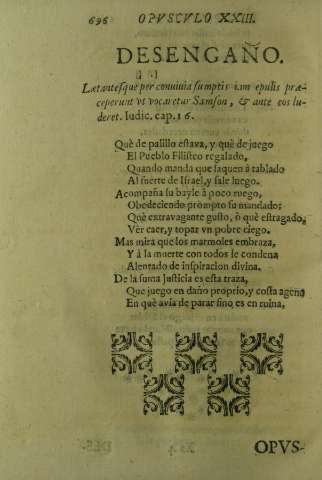 696 OPVSCVLO XXIII.
DESENGAÑO.
Lætantesque per conuiuia sumptis iam epulis præ-
ceperunt vt vocaretur Samson, & ante eos lu-
deret. Iudic. cap. 16.
Què de palillo estava, y què de juego
El Pueblo Filisteo regalado,
Quando manda que saquen à tablado
Al fuerte de Israel, y sale luego.
Acompaña su bayle à poco ruego,
Obedeciendo prompto su mandado;
Què extravagante gusto, ò què estragado,
Vèr caer, y topar vn pobre ciego.
Mas mira que los marmoles embraza,
Y à la muerte con todos se condena
Alentado de inspiracion divina.
De la suma Justicia es esta traza,
Que juego en daño proprio, y costa agena
En què avia de parar sino es en ruina,
OPVS-